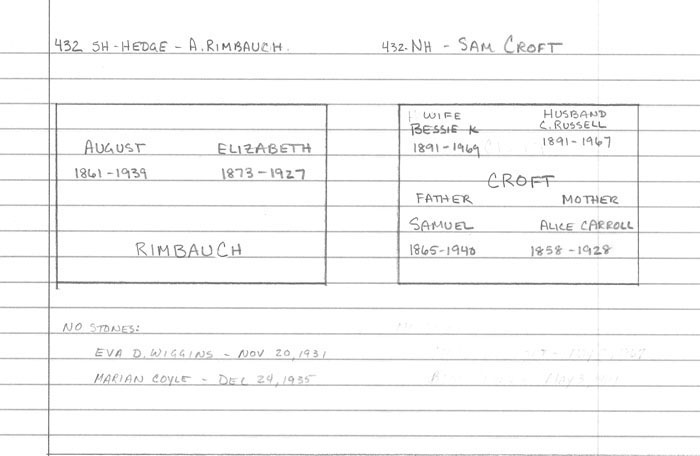 432 SH-HEDGE - A. RIMBAUCH.
432-NH - SAM CROFT
AUGUST ELIZABETH
1861-1939 1873-1927
RIMBAUCH
WIFE HUSBAND
BESSIE K C. RUSSELL
1891-1969 1891-1967
CROFT
FATHER MOTHER
SAMUEL ALICE CARROLL
1865-1940 1858-1928
NO STONES:
EVA D. WIGGINS - NOV 20, 1931
MARIAN COYLE - DEC 24, 1935